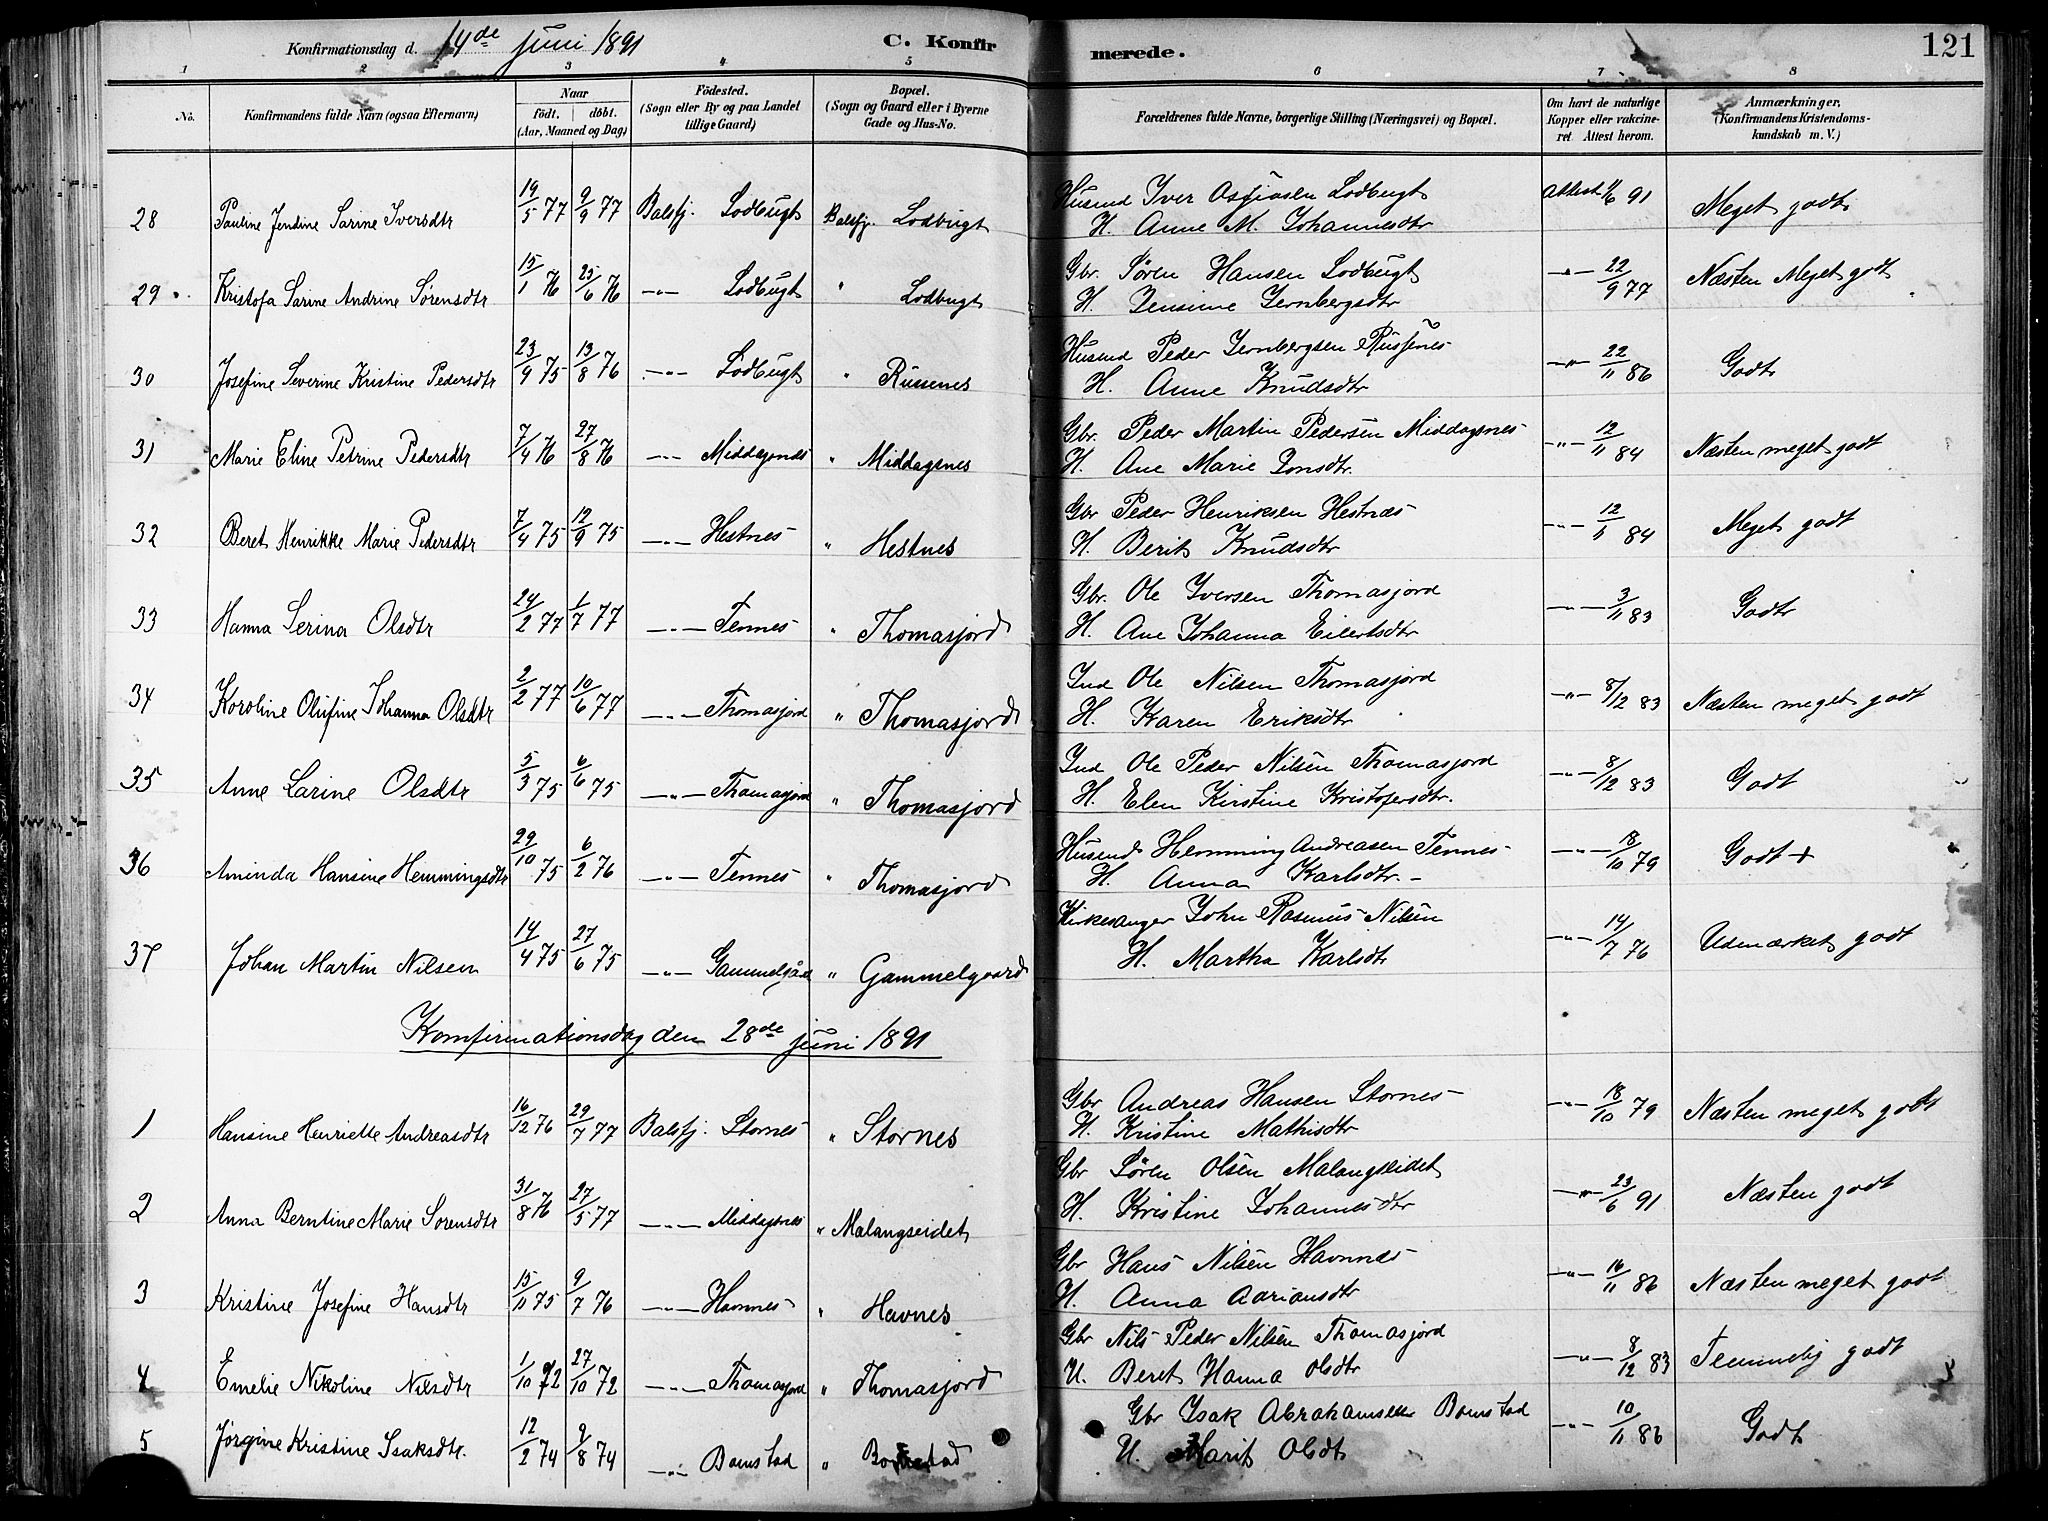 Konfirmationsdag d. 14de juni 1891 C. Konfirmerede. 121
1 2 3 4 5 6 7 8
No. Konfirmandens fulde Navn (ogsaa Efternavn) Naar født. døbt. (Aar, Maaned og Dag) Fødested. (Sogn eller By og paa Landet tillige Gaard) Bopæl. (Sogn og Gaard eller i Byerne Gade og Hus-No. Forældrenes fulde Navne, borgerlige Stilling (Næringsvei) og Bopæl. Om havt de naturlige Kopper eller vakcineret. Attest herom. Anmærkninger, (Konfirmandens Kristendomskundskab m. V.)
28 Pauline Jendine Sarine Iversdtr 19/5 77 9/9 77 Balsfj. Lodbugt Balsfj. Lodbugt Husmd Iver Lodbugt Attest 11/6 91 Meget godt
H. Anne M. Johannesdtr
29 Kristofa Sarine Andrine Sørensdtr 15/1 76 25/6 76 —"— Lodbugt " Lodbugt Gbr. Søren Hansen Lodbugt —"— 22/9 77 Næsten Meget godt
H. Jensine Jernbergsdtr
30 Josefine Severine Kristine Pedersdtr 23/9 75 13/8 76 —"— Lodbugt " Russenes Husmd Peder Jernbergsen Russenes —"— 22/11 86 Godt
H. Anne Knudsdtr
31 Marie Eline Petrine Pedersdtr 7/4 76 27/8 76 —"— Middagsnes " Middagsnes Gbr. Peder Martin Pedersen Middagsnes —"— 12/11 84 Næsten meget godt
H. Ane Marie Jonsdtr.
32 Beret Henrikke Marie Pedersdtr 7/4 75 12/9 75 —"— Hestnes " Hestnes Gbr Peder Henriksen Hestnæs —"— 12/5 84 Meget godt
H. Berit Knudsdtr
33 Hanna Serina Olsdtr 24/2 77 1/7 77 —"— Tennes " Thomasjord Gbr. Ole Iversen Thomasjord —"— 3/11 83 Godt
H. Ane Johanna Eilertsdtr
34 Koroline Olufine Johanna Olsdtr 2/2 77 10/6 77 —"— Thomasjord " Thomasjord Ind Ole Nilsen Thomasjord —"— 8/12 83 Næsten meget godt
H. Karen Eriksdtr
35 Anne Larine Olsdtr 5/3 75 6/6 75 —"— Thomasjord " Thomasjord Ind Ole Peder Nilsen Thomasjord —"— 8/12 83 Godt
H. Elen Kirstine Kristofersdtr.
36 Aminda Hansine Hemmingsdtr 29/10 75 6/2 76 —"— Tennes " Thomasjord Husmd Hemming Andreasen Tennes —"— 18/10 79 Godt +
H. Anna Karlsdtr.
37 Johan Martin Nilsen 14/4 75 27/6 75 —"— Gammelgård " Gammelgaard Kirkesanger John Rasmus Nilsen —"— 14/7 76 Udmærket godt
H. Martha Karlsdtr
Konfirmationsdag den 28de juni 1891
1 Hansine Henriette Andreasdtr 16/12 76 29/7 77 Balsfj. Stornes " Stornes Gbr Andreas Hansen Stornes —"— 18/10 79 Næsten meget godt
H. Kristine Mathisdtr
2 Anna Berntine Marie Sørensdtr 31/8 76 27/5 77 —"— Middagsnes " Malangseidet Gbr Søren Olsen Malangseidet —"— 23/6 91 Næsten godt
H. Kristine Johannesdtr
3 Kristine Josefine Hansdtr 15/11 75 9/7 76 —"— Havnes " Havnes Gbr Hans Nilsen Havnnæs —"— 16/11 86 Næsten meget godt
H. Anna Adriansdtr
4 Emelie Nikoline Nilsdtr 1/10 72 27/10 72 —"— Thomasjord " Thomasjord Gbr Nils Peder Nilsen Thomasjord —"— 8/12 83 Temmelig godt
H. Beret Hanna Olsdtr
5 Jørgine Kristine Isaksdtr. 12/2 74 9/8 74 —"— Bomstad " Gbr Isak Abrahamsen Bomstad —"— 10/11 86 Godt
H. Marit Olsdt